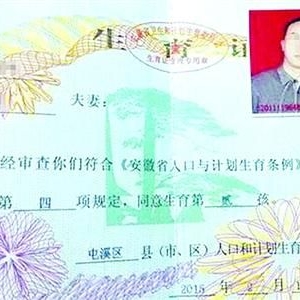 生 育 证
生育证专用章
夫妻：
经审查你们符合《安徽省人口与计划生育条例》
第 四 项规定，同意生育第 贰 孩。
屯溪区 县（市、区）人口和计划生育
2015 年